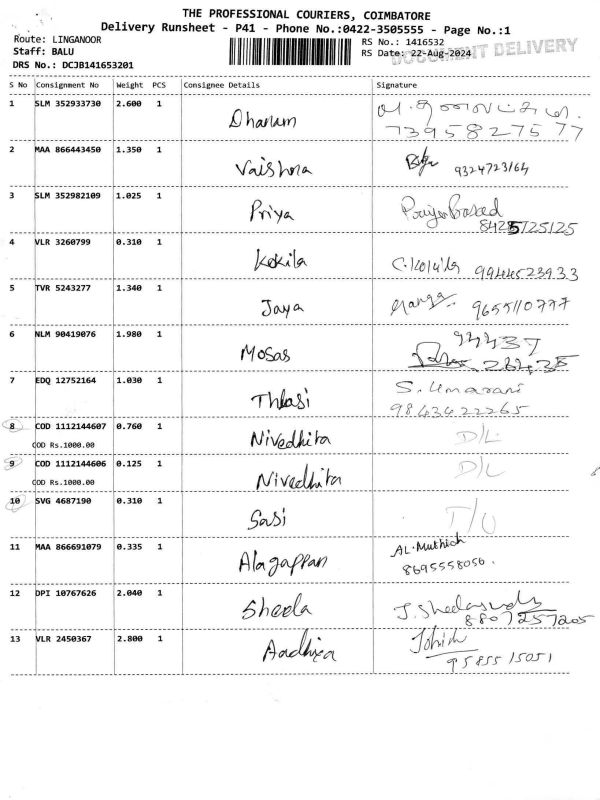 THE PROFESSIONAL COURIERS, COIMBATORE
Delivery Runsheet - P41 - Phone No.:0422-3505555 - Page No.:1
Route: LINGANOOR
RS No.: 1416532
Staff: BALU
RS Date: 22-Aug-2024
DOCUMENT DELIVERY
DRS No.: DCJB141653201
S No Consignment No Weight PCS Consignee Details Signature
1 SLM 352933730 2.600 1 Dhanam
7395827577
2 MAA 866443450 1.350 1 Vaishna 9324723164
3 SLM 352982109 1.025 1 Priya
8425125125
4 VLR 3260799 0.310 1 Kokila C.Kokila 9944523933
5 TVR 5243277 1.340 1 Jaya Manga 9655110777
6 NLM 90419076 1.980 1 Mosas 94437
28435
7 EDQ 12752164 1.030 1 Thlasi S. Umarani
9843422265
8 COD 1112144607 0.760 1 Nivedhita D/L
COD Rs.1000.00
9 COD 1112144606 0.125 1 Nivedhita D/L
COD Rs.1000.00
10 SVG 4687190 0.310 1 Sasi T/O
11 MAA 866691079 0.335 1 Alagappan AL.Muthiah
8695558056.
12 DPI 10767626 2.040 1 Sheela
8807257205
13 VLR 2450367 2.800 1 Aadhira
9585515051